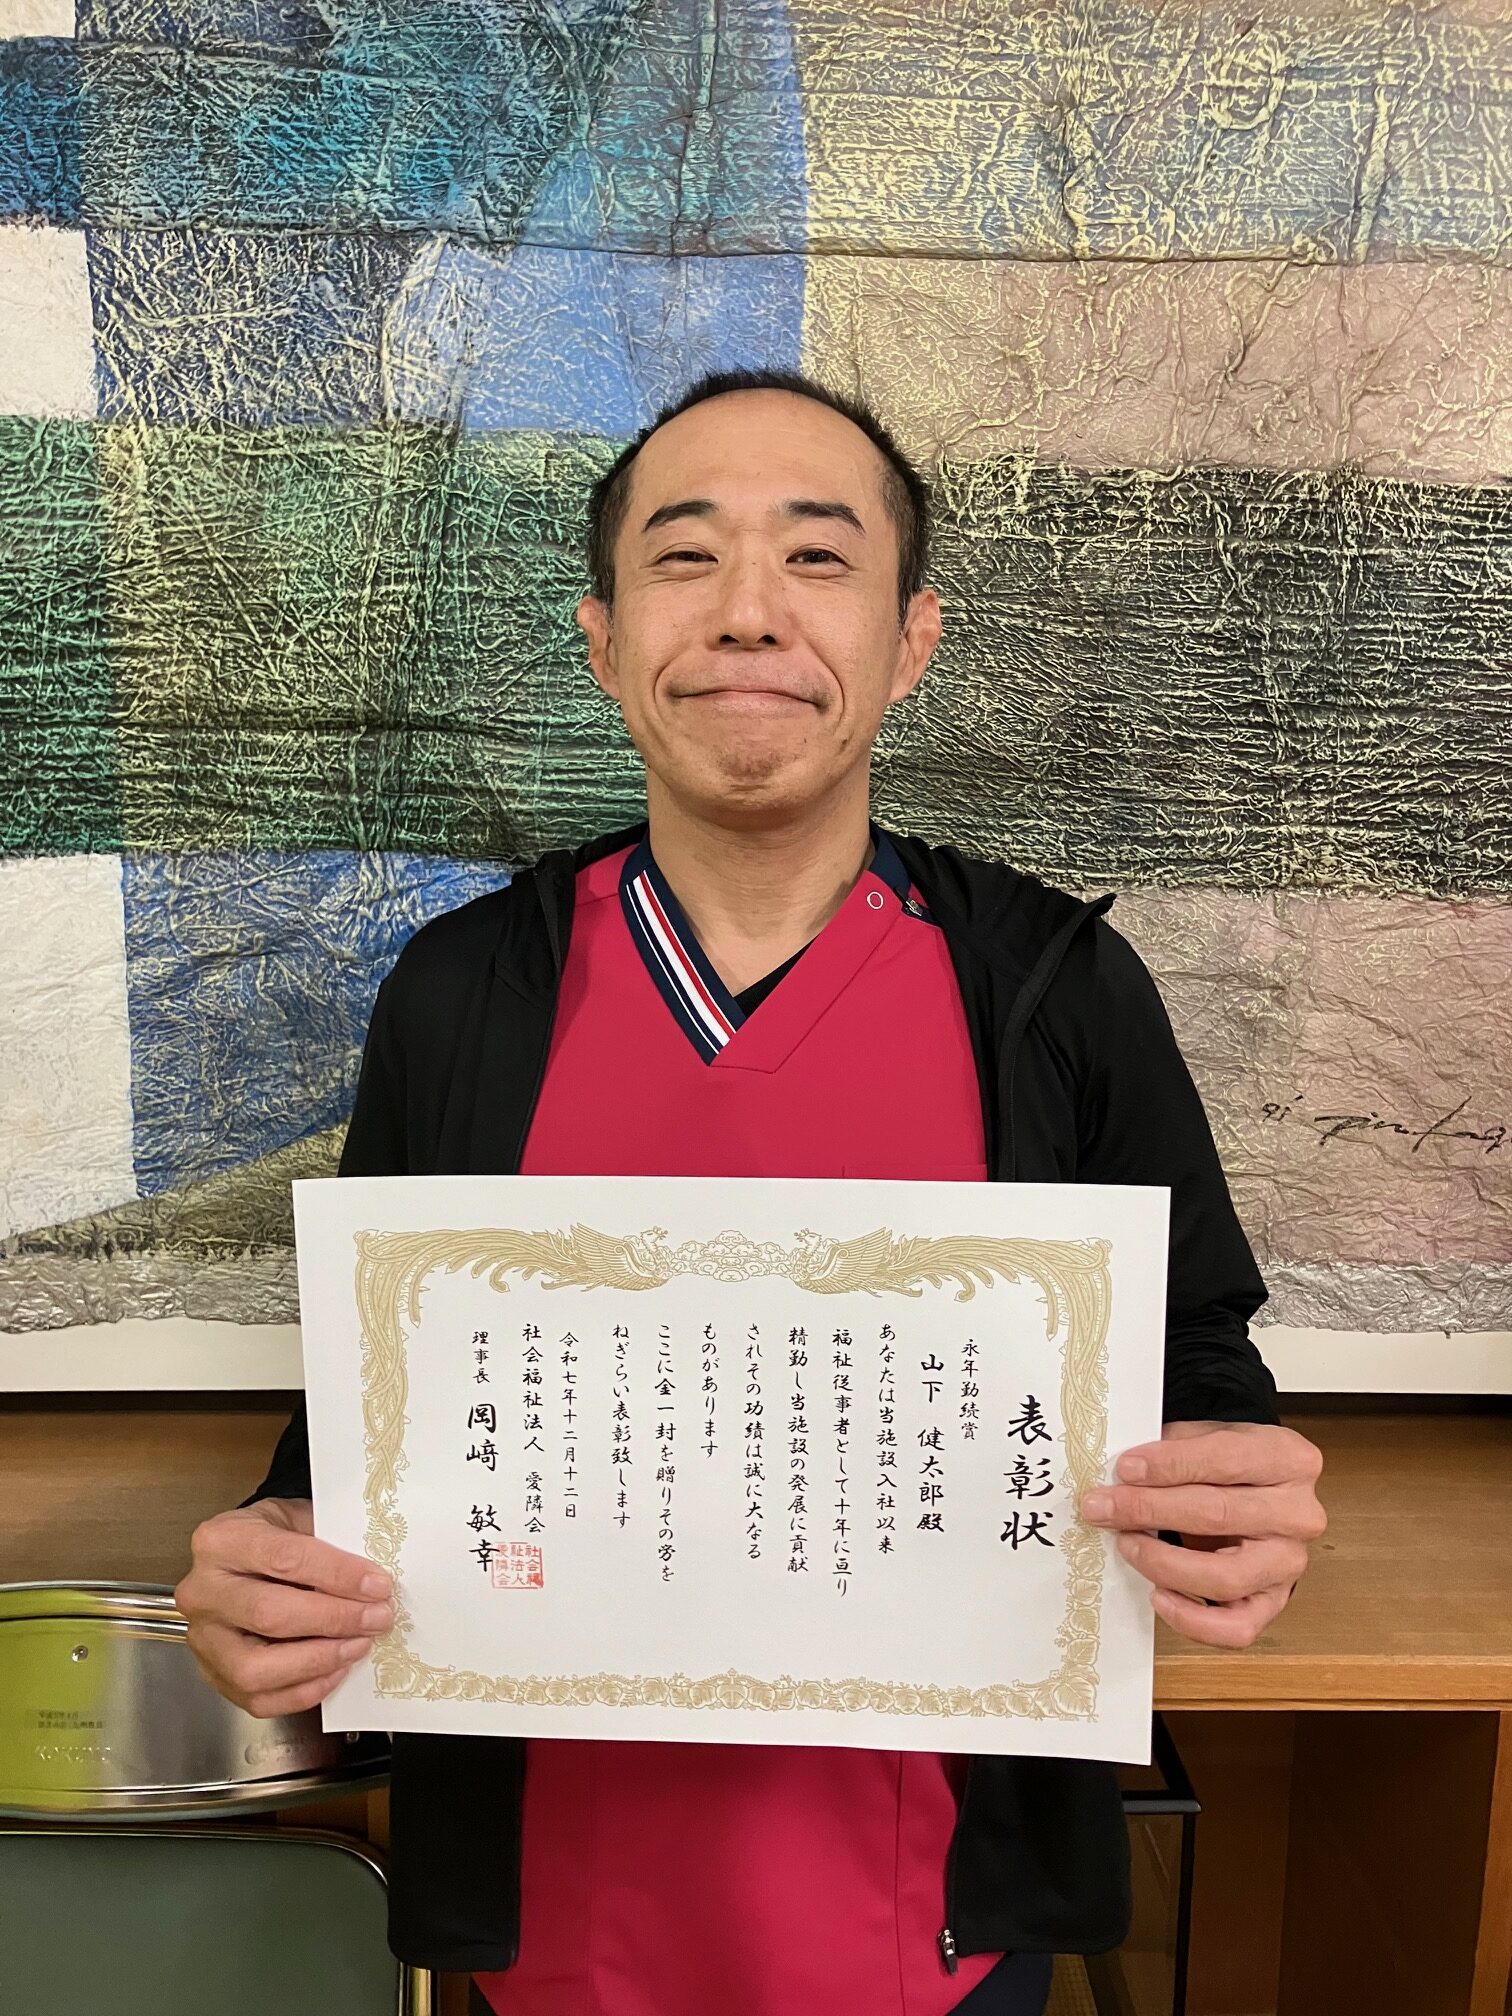 表彰状
永年勤続賞
山下 健太郎殿
あなたは当施設入社以来
福祉従事者として十年に亘り
精勤し当施設の発展に貢献
されその功績は誠に大なる
ものがあります
ここに金一封を贈りその労を
ねぎらい表彰致します
令和七年十二月十二日
社会福祉法人 愛隣会
理事長 岡﨑 敏幸
社会福
祉法人
愛隣会
KOKUYO